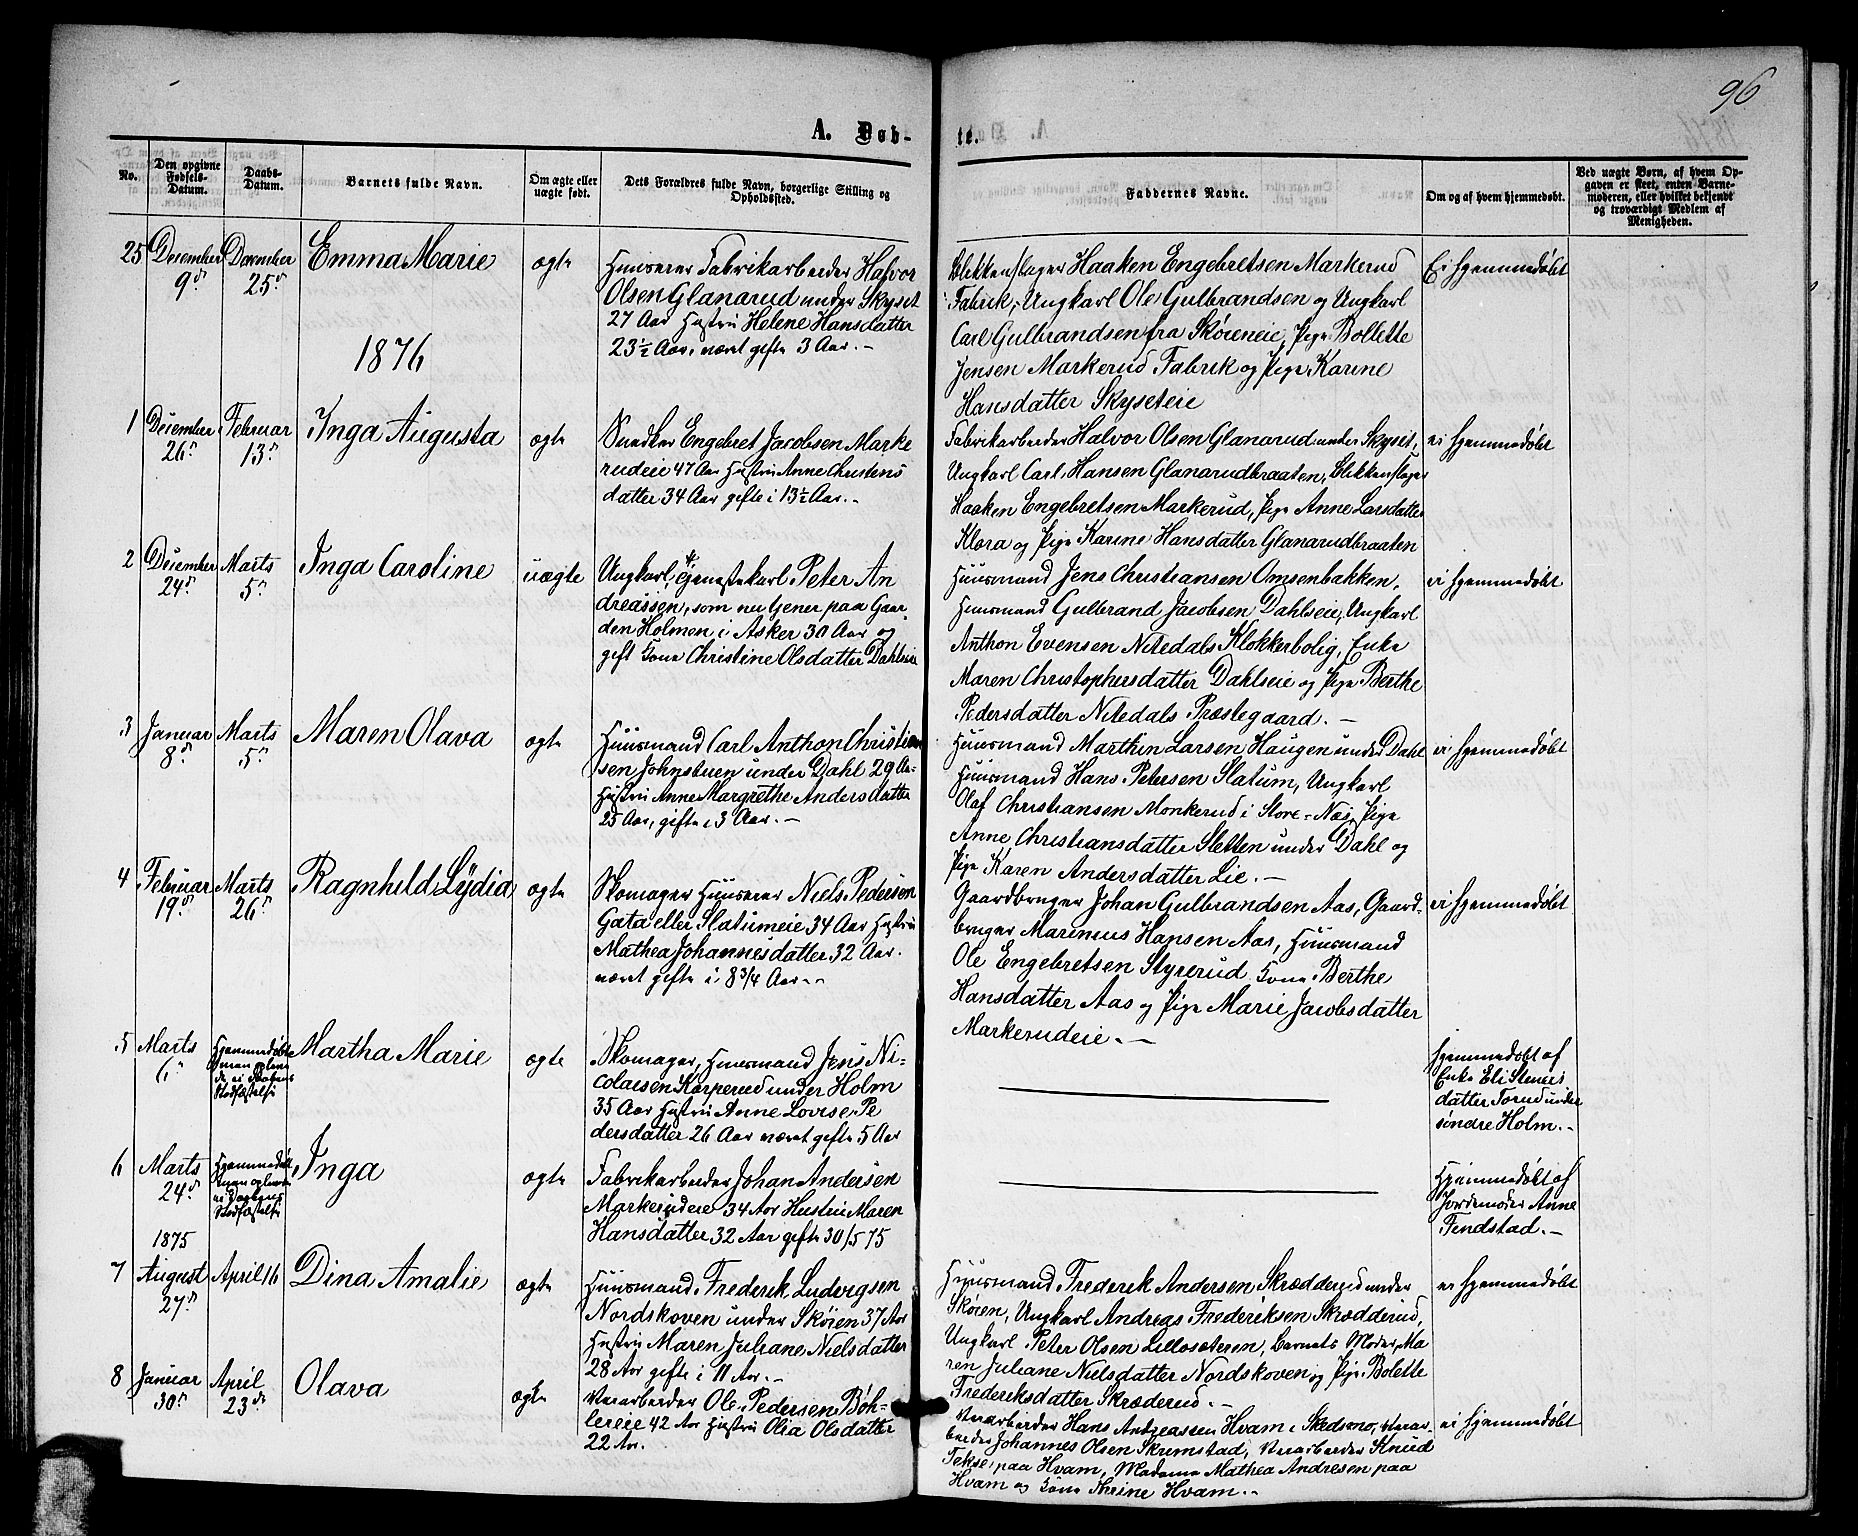 96
A. Døb-
te.
No.
Den opgivne Fødsels-Datum.
Daabs-Datum.
Barnets fulde Navn.
Om ægte eller uægte født.
Dets Forældres fulde Navn, borgerlige Stilling og Opholdssted.
Faddernes Navne.
Om og af hvem hjemmedøbt.
Ved uægte Børn, af hvem Opgaven er skeet, enten Barnemoderen, eller hvilket bekjendt og troværdigt Medlem af Menigheden.
25
December 9de
December 25de
Emma Marie
ægte
Huuseier Fabrikarbeider Halvor
Olsen Glanarud under Skyset
27 Aar Hustru Helene Hansdatter
23½ Aar, været gifte 3 Aar. -
Blikkenslager Haaken Engebretsen Markerud
Fabrik, Ungkarl Ole Gulbrandsen og Ungkarl
Carl Gulbrandsen fra Skøieneie, Pige Bollette
Jensen Markerud Fabrik og Pige Karine
Hansdatter Skyseteie
Ei hjemmedøbt
1876
1
December 26de
Februar 13de
Inga Augusta
ægte
Snedker Engebret Jacobsen Marke
rudeie 47 Aar Hustru Anne Christens
datter 34 Aar gifte i 13½ Aar. -
Fabrikarbeider Halvor Olsen Glanarud under Skyset,
Ungkarl Carl Hansen Glanarudbraaten, Blikkenslager
Haaken Engebretsen Markerud, Pige Anne Larsdatter
Klora og Pige Karine Hansdatter Glanarudbraaten
ei hjemmedøbt
2
December 24de
Marts 5de
Inga Caroline
uægte
Ungkarl, Tjenestekarl Peter An
dreassen, som nu tjener paa Gaar
den Holmen i Asker 30 Aar og
gift Kone Christine Olsdatter Dahlseie
Huusmand Jens Christiansen Omsenbakken,
Huusmand Gulbrand Jacobsen Dahlseie, Ungkarl
Anthon Evensen Nitedals Klokkerbolig, Enke
Maren Christophersdatter Dahlseie og Pige Berthe
Pedersdatter Nitedals Præstegaard. -
ei hjemmedøbt
3
Januar 8de
Marts 5de
Maren Olava
ægte
Huusmand Carl Anthon Christian
sen Johnstuen under Dahl 29 Aar
Hustru Anne Margrethe Andersdatter
25 Aar, gifte i 3 Aar. -
Huusmand Marthin Larsen Haugen under Dahl
Huusmand Hans Petersen Slatum, Ungkarl
Olaf Christiansen Monkerud i Store-Næs, Pige
Anne Christiansdatter Sletten under Dahl og
Pige Karen Andersdatter Lie. -
ei hjemmedøbt
4
Februar 19de
Marts 26de
Ragnhild Lydia
ægte
Skomager Huuseier Niels Pedersen
Gata eller Slatumeie 34 Aar Hustru
Mathea Johannesdatter 32 Aar.
været gifte i 8 3/4 Aar. -
Gaardbruger Johan Gulbrandsen Aas, Gaard-
bruger Marinius Hansen Aas, Huusmand
Ole Engebretsen Styrerud Kone Berthe
Hansdatter Aas og Pige Marie Jacobsdatter
Markerudeie. -
ei hjemmedøbt
5
Marts 6te
Hjemmedøbt
men oplevede ei Daabens
Stadfæstelse
Martha Marie
ægte
Skomager, Huusmand Jens Ni-
colaisen Korperud under Holm
35 Aar Hustru Anne Lovise Pe
dersdatter 26 Aar været gifte 5 Aar
Hjemmedøbt af
Enke Eli Stenersdatter Torud under
søndre Holm. -
6
Marts 24de
Hjemmedøbt
men oplevede ei Daabens
Stadfæstelse
Inga
ægte
Fabrikarbeider Johan Andersen
Markerudeie 34 Aar Hustru Maren
Hansdatter 32 Aar gifte 30/5 75
Hjemmedøbt af
Jordemoder Anne
Tendstad. -
7
1875
August 27de
April 16
Dina Amalie
ægte
Huusmand Frederik Ludvigsen
Nordskoven under Skøien 37 Aar
Hustru Maren Juliane Nielsdatter
28 Aar gifte i 11 Aar. -
Huusmand Frederik Andersen Skrædderud under
Skøien, Ungkarl Andreas Frederiksen Skrædderud,
Ungkarl Peter Olsen Lillosæteren, Barnets Moder Ma
ren Juliane Nielsdatter Nordskoven og Pige Bolette
Frederiksdatter Skræderud. -
ei hjemmedøbt
8
Januar 30de
April 23de
Olava
ægte
Veiarbeider Ole Pedersen Bøh-
lereie 42 Aar Hustru Olia Olsdatter
22 Aar.
Veiarbeider Hans Andreassen Hvam i Skedsmo, Veiar-
beider Johannes Olsen Skrimstad, Veiarbeider Knud
Tekse paa Hvam, Madame Mathea Andresen paa
Hvam og Kone Thrine Hvam. -
ei hjemmedøbt